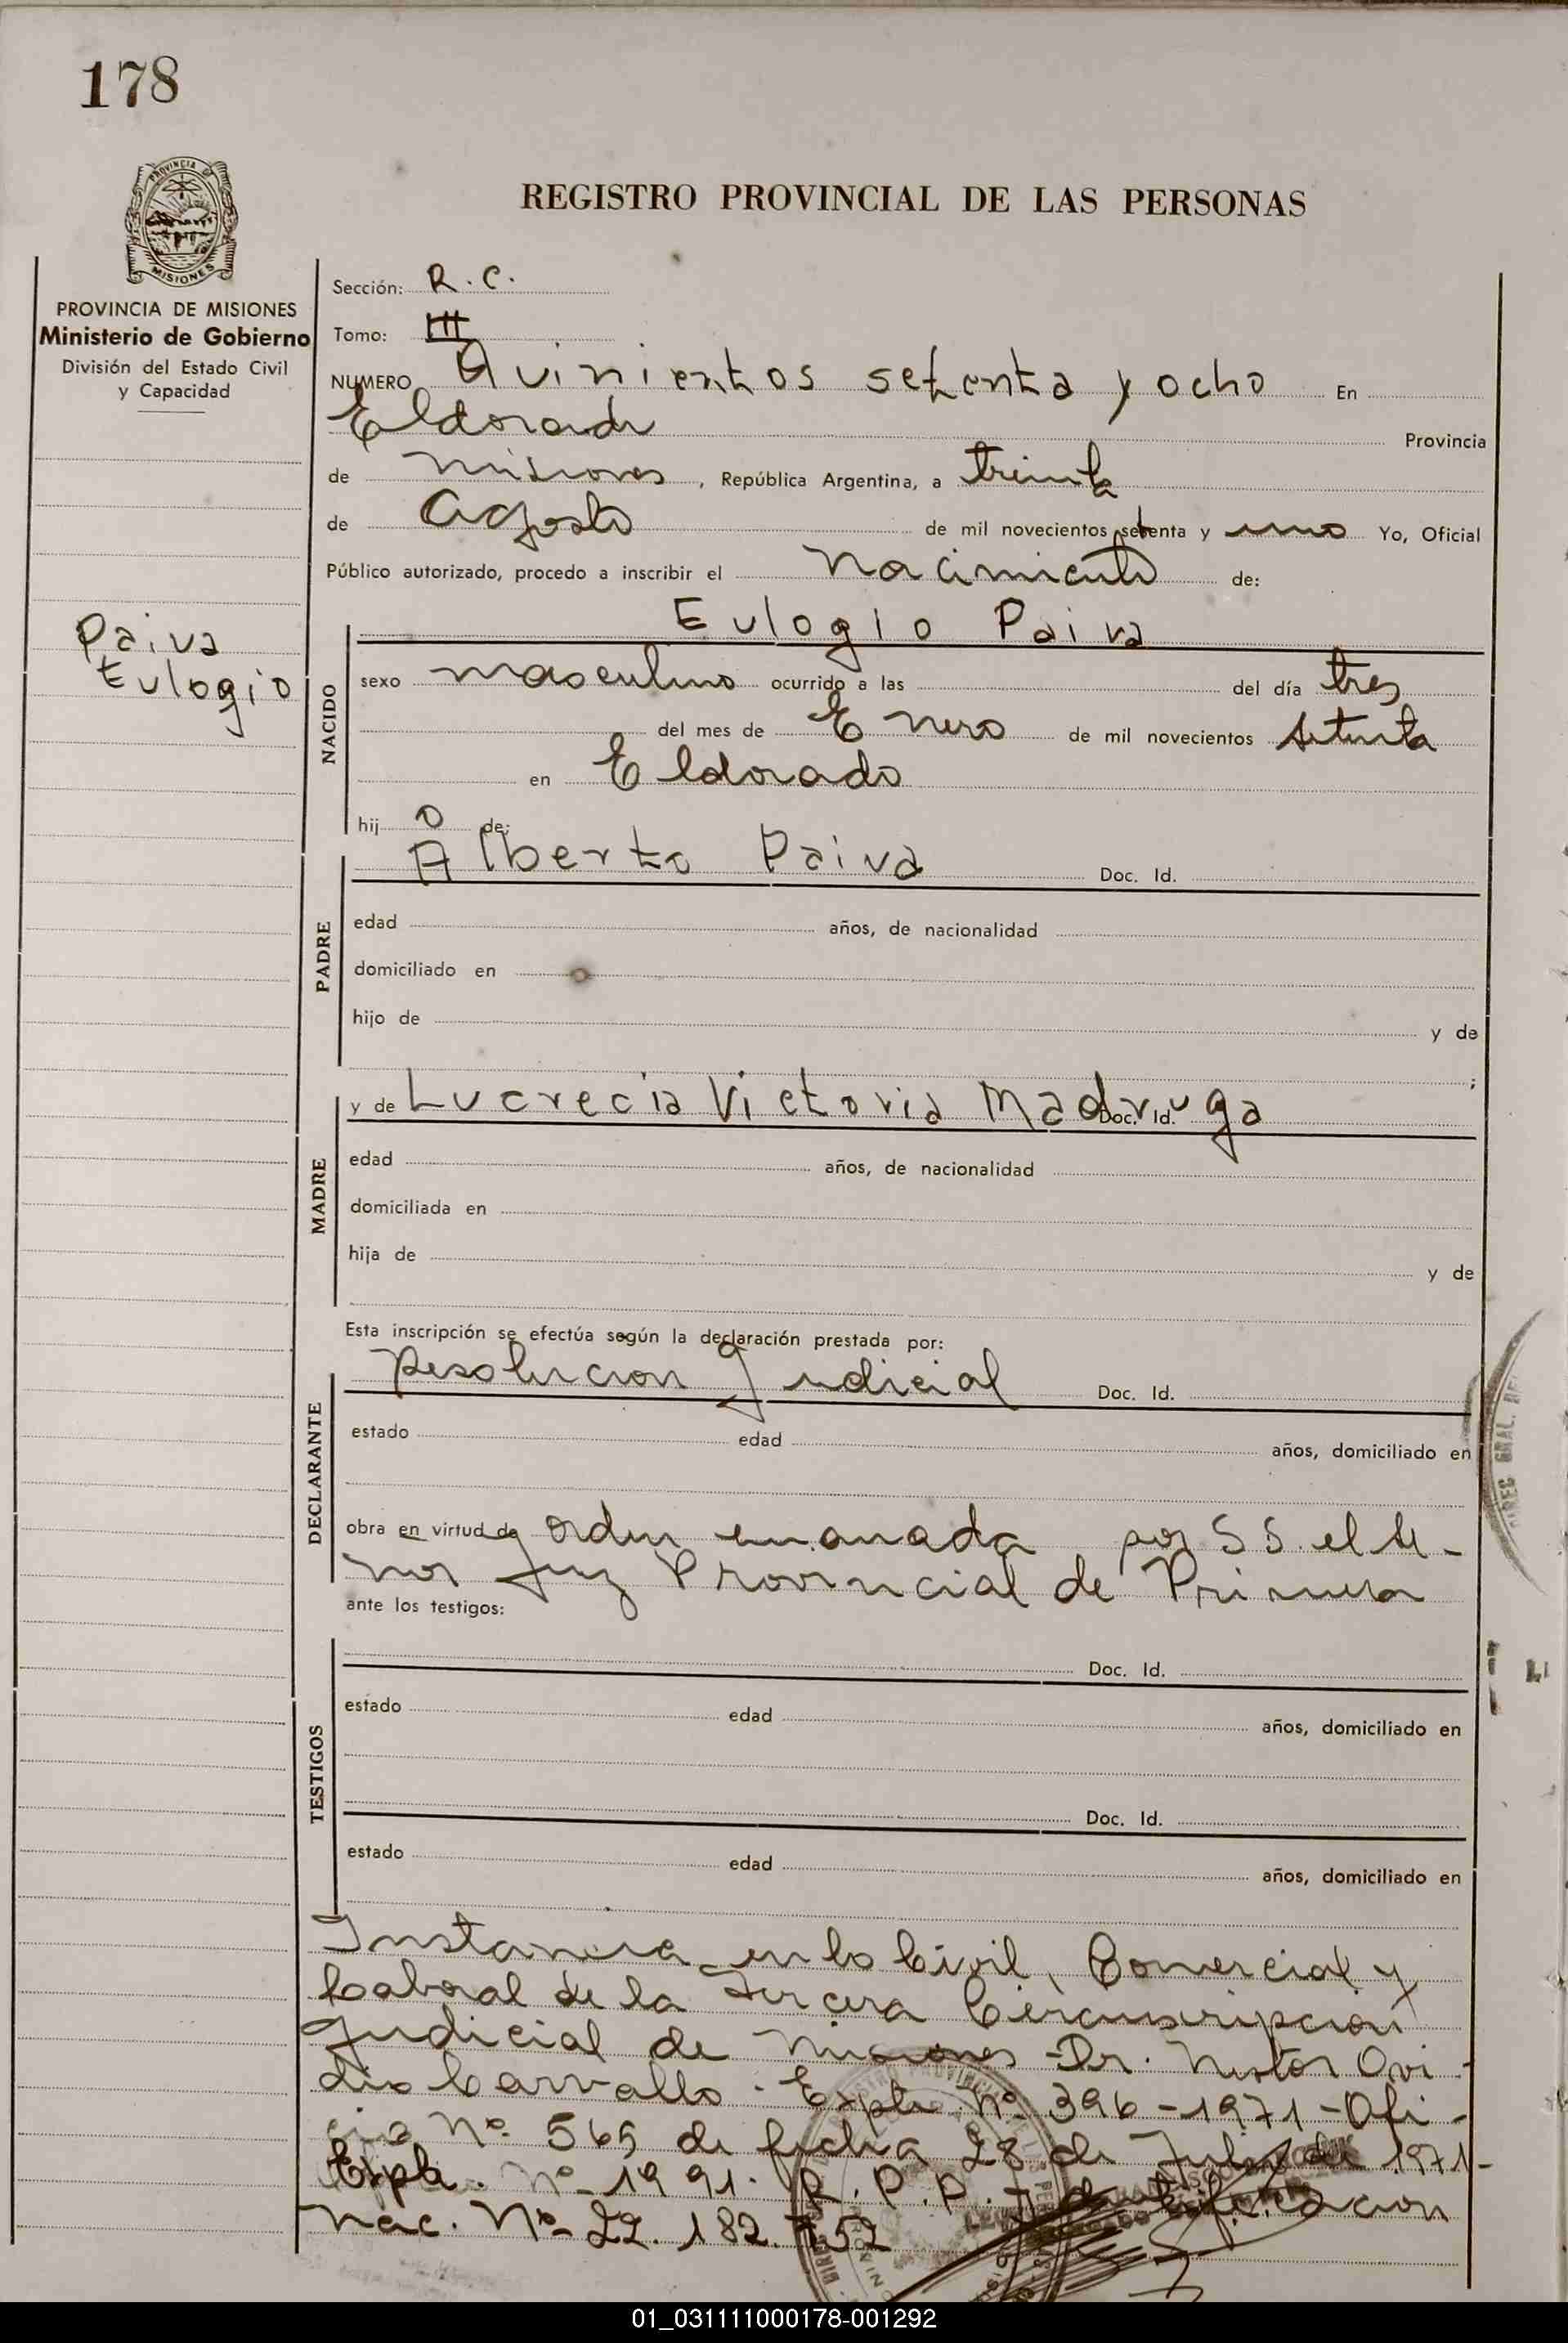 178
PROVINCIA DE MISIONES
REGISTRO PROVINCIAL DE LAS PERSONAS
PROVINCIA DE MISIONES
Ministerio de Gobierno
División del Estado Civil
y Capacidad
Paiva
Eulogio
Sección: R. C.
Tomo: III
NUMERO Quinientos setenta y ocho En
Eldorado Provincia
de Misiones, República Argentina, a treinta
de Agosto de mil novecientos setenta y uno Yo, Oficial
Público autorizado, procedo a inscribir el Nacimiento de:
NACIDO
Eulogio Paiva
sexo masculino ocurrido a las del día tres
del mes de Enero de mil novecientos setenta
en Eldorado
hij o de:
PADRE
Alberto Paiva Doc. Id.
edad años, de nacionalidad
domiciliado en
hijo de y de
;
MADRE
y de Lucrecia Victoria Madruga Doc. Id.
edad años, de nacionalidad
domiciliada en
hija de y de
Esta inscripción se efectúa según la declaración prestada por:
DECLARANTE
Resolucion Judicial Doc. Id.
estado edad años, domiciliado en
obra en virtud de orden emanada por S S. el Se-
ñor Juez Provincial de Primera
ante los testigos:
TESTIGOS
Doc. Id.
estado edad años, domiciliado en
Doc. Id.
estado edad años, domiciliado en
Instancia en lo Civil, Comercial y
Laboral de la Tercera Circunscripcion
Judicial de Misiones Dr. Nestor Ovi-
dio Carvallo. Expte. Nº 396-1971-Ofi-
cio Nº 565 de fecha 28 de Julio de 1971-
Expte. Nº 1991. R. P. P.
Nac. Nº 22.182.752
01_031111000178-001292